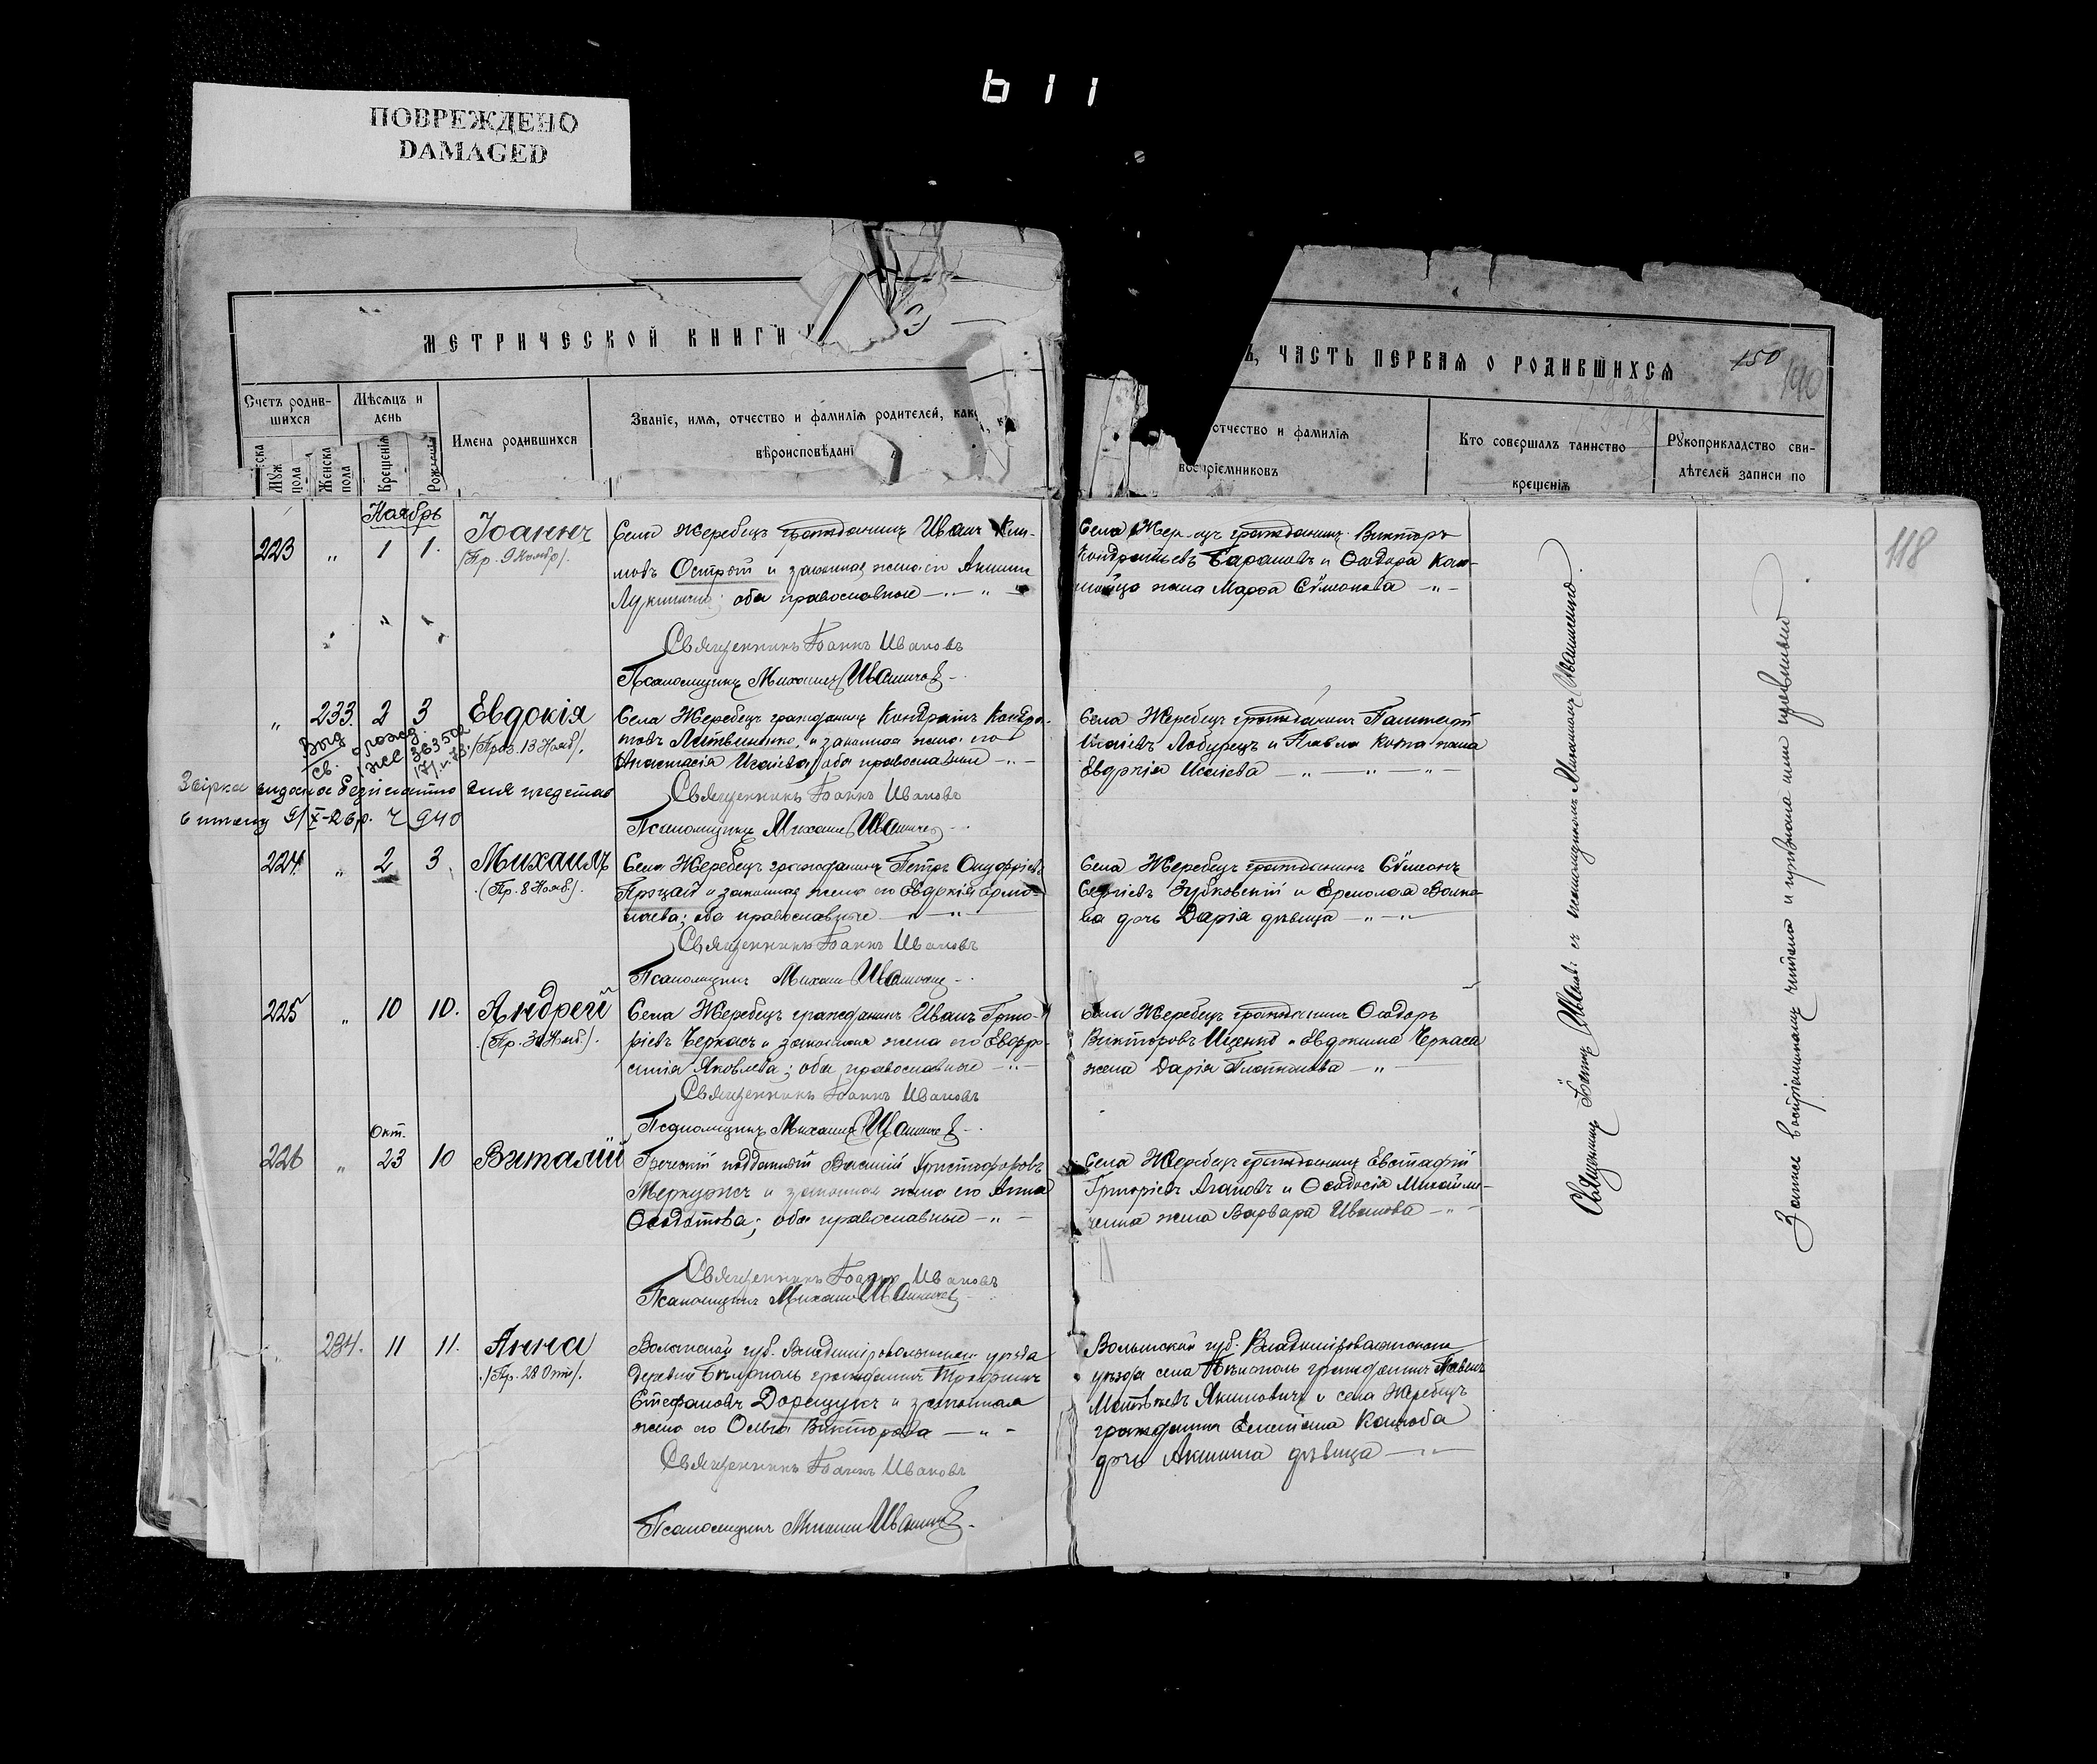 611
ПОВРЕЖДЕНО
DAMAGED
МЕТРИЧЕСКОЙ КНИГИ
Ъ, ЧАСТЬ ПЕРВАЯ О РОДИВШИХСЯ
150
190
118
Счетъ родив-
шихся
Мѣсяцъ и
день
Имена родившихся
Званіе, имя, отчество и фамилія родителей, как
вѣроисповѣдані
отчество и фамилія
воспріемниковъ
Кто совершалъ таинство
крещенія
Рукоприкладство сви-
дѣтелей записи по
Муж
пола
Женска
пола
Крещенія
Рожденія
Ноябрь
223 " 1 1. Іоаннъ
(Пр. 9 Ноябр).
Села Жеребецъ гражданинъ Иванъ Кли-
мовъ Острый и законная жена его Акилина
Лукинична; оба православные
Священникъ Іоаннъ Ивановъ
Псаломщикъ Михаилъ
Села Жер-ецъ гражданинъ Викторъ
Кондратьевъ Барановъ и Ѳеодора
жена Марѳа Сѵмеонова
" 233. 2 3 Евдокія
(Праз. 13 Нояб).
Села Жеребецъ гражданинъ Кондратъ Кондра-
товъ Литвиненко, и законная жена его
Анастасія Исаіева; оба православные
Священникъ Іоаннъ Ивановъ
Псаломщикъ Михаилъ
Села Жеребецъ гражданинъ
Исаіевъ Лобурецъ и Павла жена
Евдокія Исаіева
Выд.
св.
о рожд.
363502
видана безплатно для
9/X-26 р. Ч 940
224. " 2 3. Михаилъ
(Пр. 8 Нояб).
Села Жеребецъ гражданинъ Петръ Онуфріевъ
Процай и законная жена его Евдокія Ермо-
лаева; оба православные
Священникъ Іоаннъ Ивановъ
Псаломщикъ Михаилъ
Села Жеребецъ гражданинъ Сѵмеонъ
Сергіевъ Зубковскій и Ермолая Волко-
ва дочь Дарія дѣвица
225 " 10 10. Андрей
(Пр. 30 Нояб.).
Села Жеребецъ гражданинъ Иванъ Григо-
ріевъ Черкасъ и законная жена его Евфро-
синія Яковлева; оба православные
Священникъ Іоаннъ Ивановъ
Псаломщикъ Михаилъ
Села Жеребецъ гражданинъ Ѳеодоръ
Викторовъ Ищенко и Евдокима Черкаса
жена Дарія Платонова
Окт.
226 " 23 10 Виталій
Греческій подданный Василій Христофоровъ
Меркужъ и законная жена его Анна
Ѳеодотова; оба православные
Священникъ Іоаннъ Ивановъ
Псаломщикъ Михаилъ
Села Жеребецъ гражданинъ Евстафій
Григоріевъ Агаповъ и Ѳеодосія Михайли-
ченка жена Варвара Иванова
234. 11 11. Анна
Волынской губ. Владиміроволынскаго уѣзда
деревни гражданинъ Трофимъ
Стефановъ Дорещукъ и законная
жена его Ольга Викторова
Священникъ Іоаннъ Ивановъ
Псаломщикъ Михаилъ
Волынской губ. Владиміроволынскаго
уѣзда села гражданинъ Павелъ
Матѳѣевъ Якимовичъ и села Жеребецъ
гражданина Кацюба
дочь Акилина дѣвица
Священникъ Іоаннъ Ивановъ съ псаломщикомъ Михаиломъ
Запись воспріемникамъ читана и признана ими правильной.